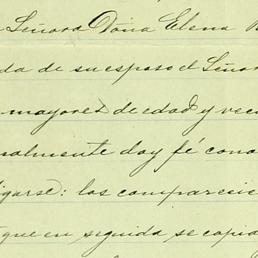 Señora Doña Elena
da de su esposo el Señor
mayores de edad y veci
almente doy fé cono
igarse: los comparecie
que en seguida se copia